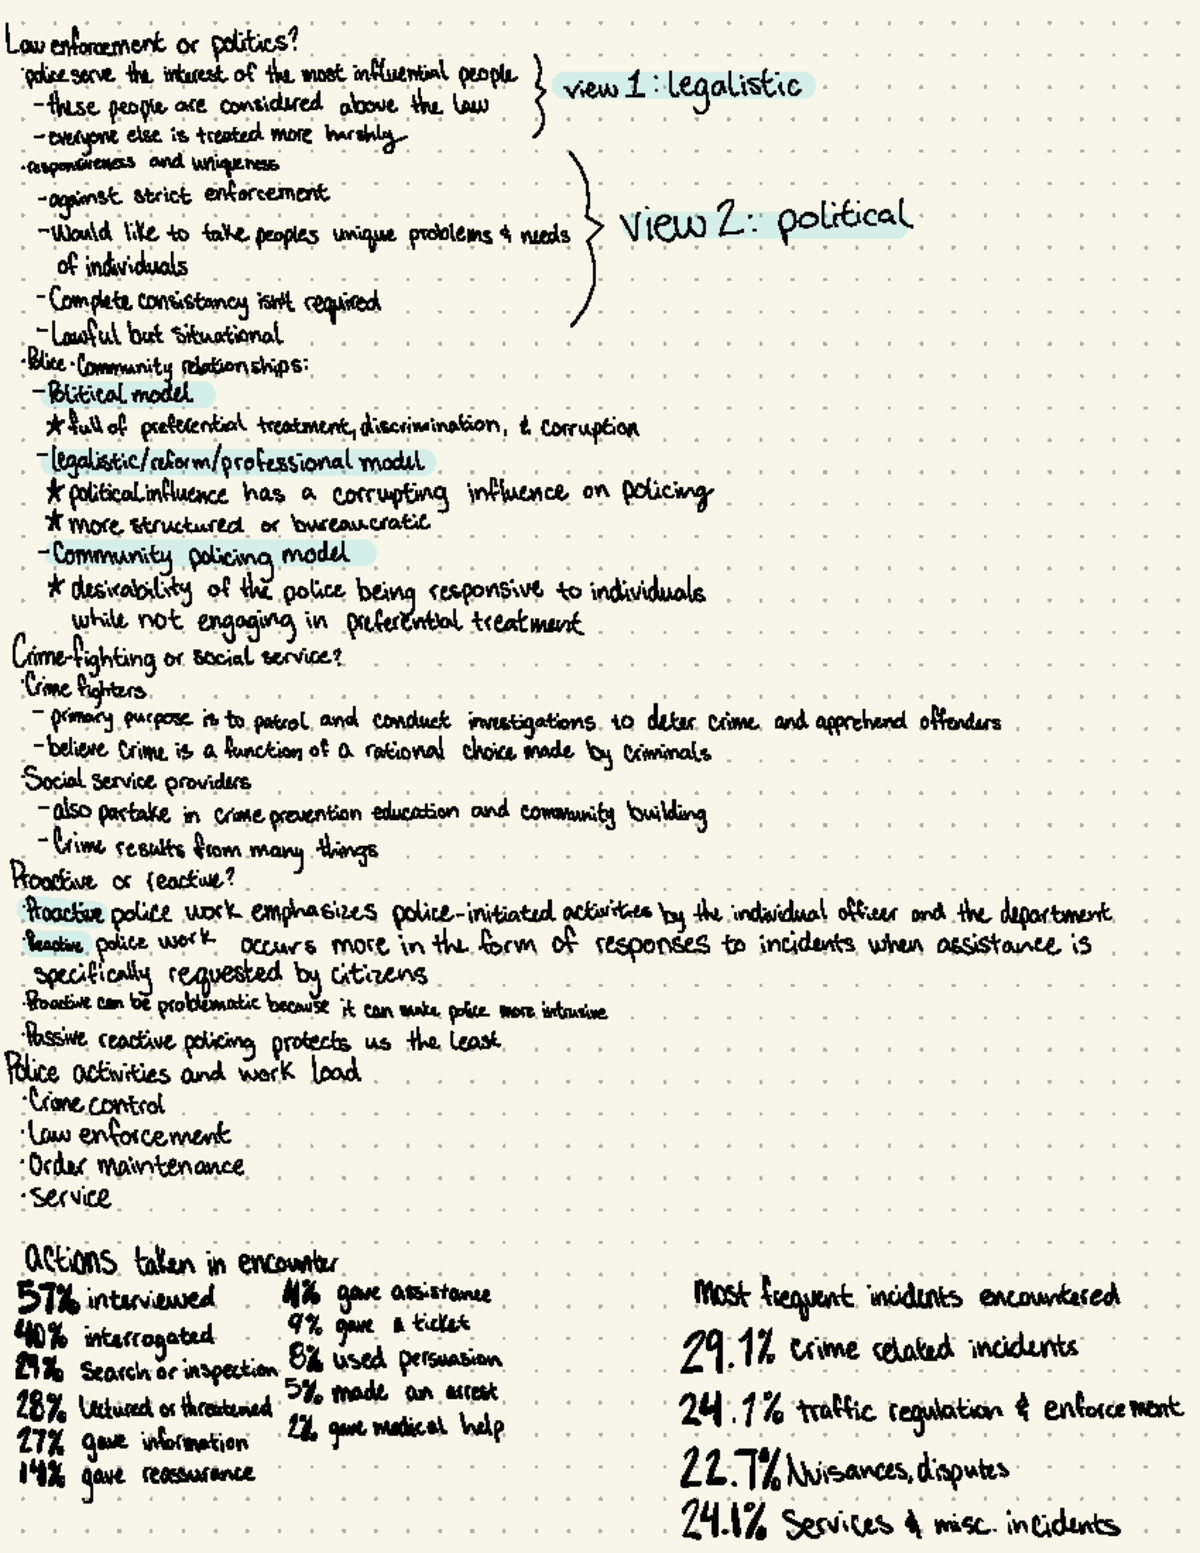 Law enforcement or politics?
·police serve the interest of the most influential people
-these people are considered above the law
-everyone else is treated more harshly
view 1: legalistic
·responsiveness and uniqueness
-against strict enforcement
-Would like to take peoples unique problems & needs
of individuals
-Complete consistancy isn't required
-Lawful but situational
view 2: political
·Police-Community relationships:
-Political model
★ full of preferential treatment, discrimination, & corruption
-legalistic/reform/professional model
★ political influence has a corrupting influence on policing
★ more structured or bureaucratic
-Community policing model
★ desirability of the police being responsive to individuals
while not engaging in preferential treatment
Crime-fighting or social service?
·Crime fighters
- primary purpose is to patrol and conduct investigations to deter crime and apprehend offenders
-believe crime is a function of a rational choice made by criminals
·Social service providers
-also partake in crime prevention education and community building
-Crime results from many things
Proactive or reactive?
·Proactive police work emphasizes police-initiated activities by the individual officer and the department
·Reactive police work occurs more in the form of responses to incidents when assistance is
specifically requested by citizens
·Proactive can be problematic because it can make police more intrusive
·Passive reactive policing protects us the least
Police activities and work load
·Crime control
·Law enforcement
·Order maintenance
·Service
actions taken in encounter
57% interviewed
40% interrogated
29% Search or inspection
28% Lectured or threatened
27% gave information
14% gave reassurance
11% gave assistance
9% gave a ticket
8% used persuasion
5% made an arrest
2% gave medical help
most frequent incidents encountered
29.1% crime related incidents
24.1% traffic regulation & enforcement
22.7% Nuisances, disputes
24.1% Services & misc. incidents